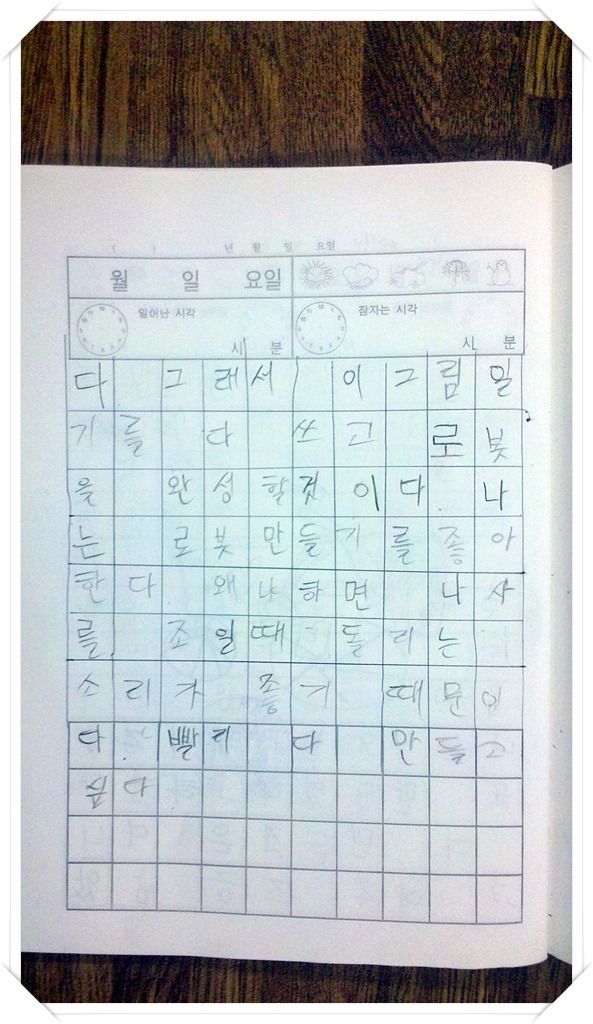 ( ) 년 월 일 요일
월 일 요일
일어난 시각 잠자는 시각
시 분 시 분
다 그래서 이그림일
기를 다 쓰고 로봇
을 완성할것이다. 나
는 로봇만들기를좋아
한다. 왜냐하면 나사
를 조일때 돌리는
소리가 좋기 때문이
다. 빨리 다 만들고
싶다